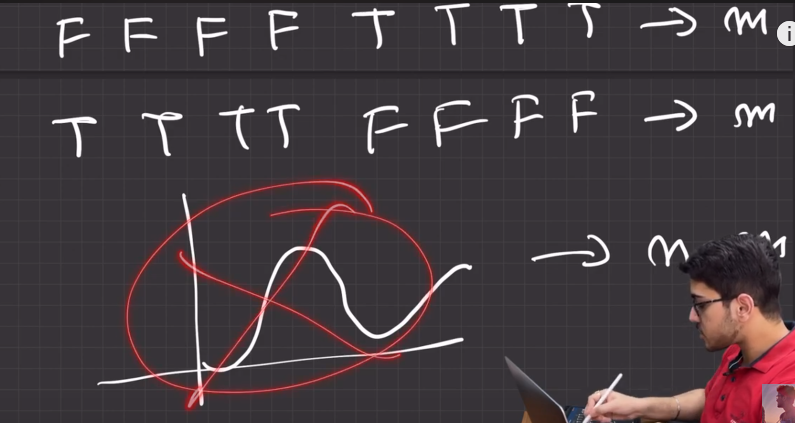 F F F F T T T T → m
T T T T F F F F → m
→ m